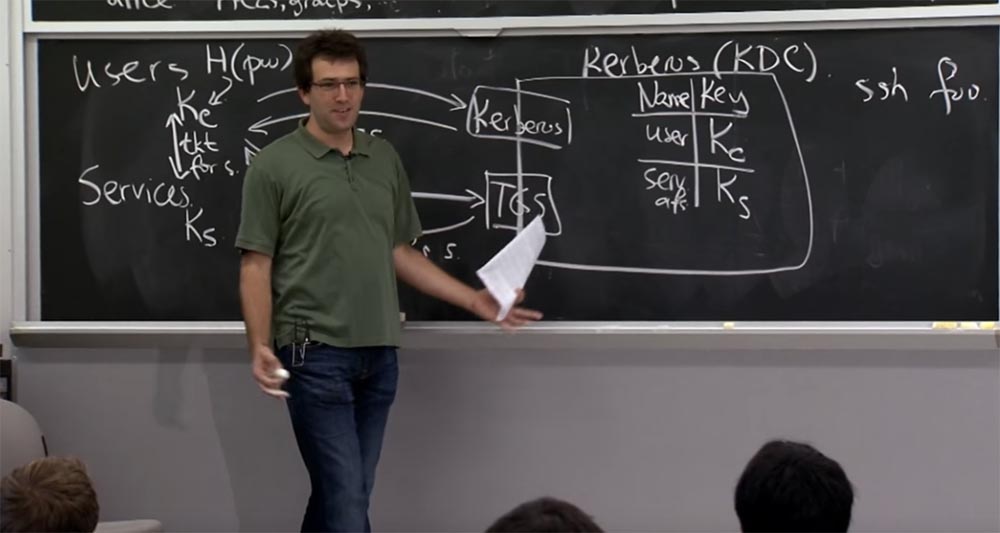 Users H(pw)
Kc
tkt
for s.
Services
Ks
Kerberos
TGS
s.
Kerberos (KDC)
Name Key
user Kc
serv Ks
afs
ssh foo